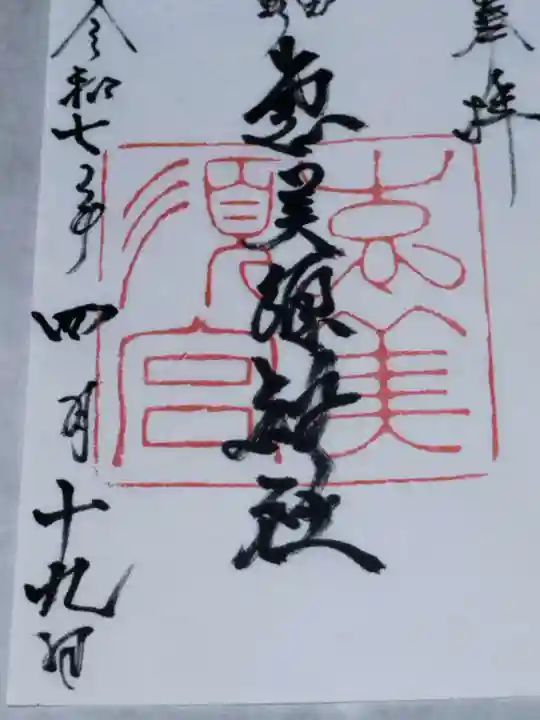 奉拝
恵美須神社
令和七年四月十九日
恵美
須宮